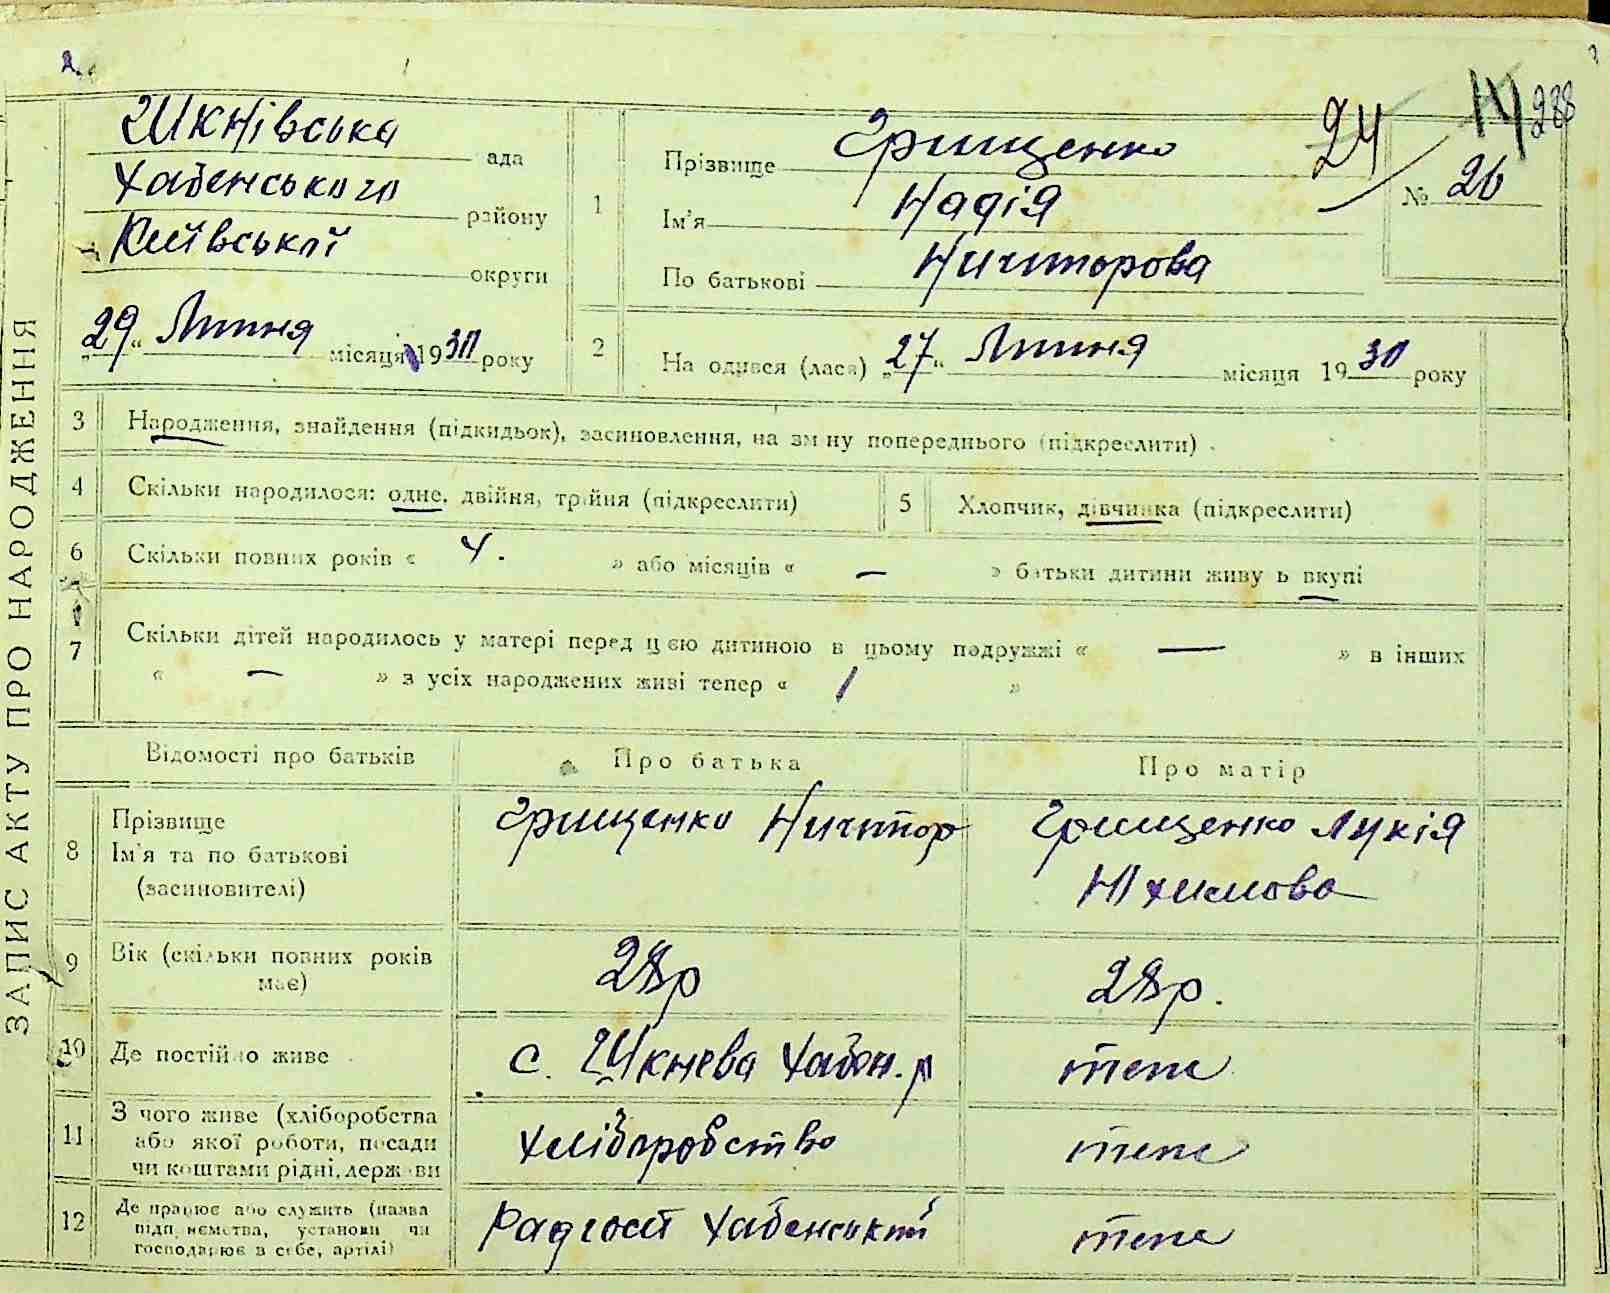 ЗАПИС АКТУ ПРО НАРОДЖЕННЯ
288
24
№ 26
Шкнівська ада
Хабенського району
Київської округи
„29“ Липня місяця 1930 року
1
Прізвище Грищенко
Ім'я Надія
По батькові Ничипорова
2
На одився (лася) „27“ Липня місяця 1930 року
3 Народження, знайдення (підкидьок), засиновлення, на зм ну попереднього (підкреслити).
4 Скільки народилося: одне, двійня, трійня (підкреслити)
5 Хлопчик, дівчинка (підкреслити)
6 Скільки повних років « 4. » або місяців « — » батьки дитини живу ь вкупі
7 Скільки дітей народилось у матері перед цією дитиною в цьому подружжі « — » в інших
« — » з усіх народжених живі тепер « 1 »
Відомості про батьків
Про батька
Про матір
8
Прізвище
Ім'я та по батькові
(засиновителі)
Грищенко Ничипор
Грищенко Лукія
Юхимова
9 Вік (скільки повних років має)
28р
28р.
10 Де постійно живе
с. Шкнева Хабен. р
теж
11
З чого живе (хліборобства
або якої роботи, посади
чи коштами рідні, держ ви
Хліборобство
теж
12
Де працює або служить (назва
підп ємства, установи чи
господарює в себе, артілі)
Радгосп Хабенський
теж